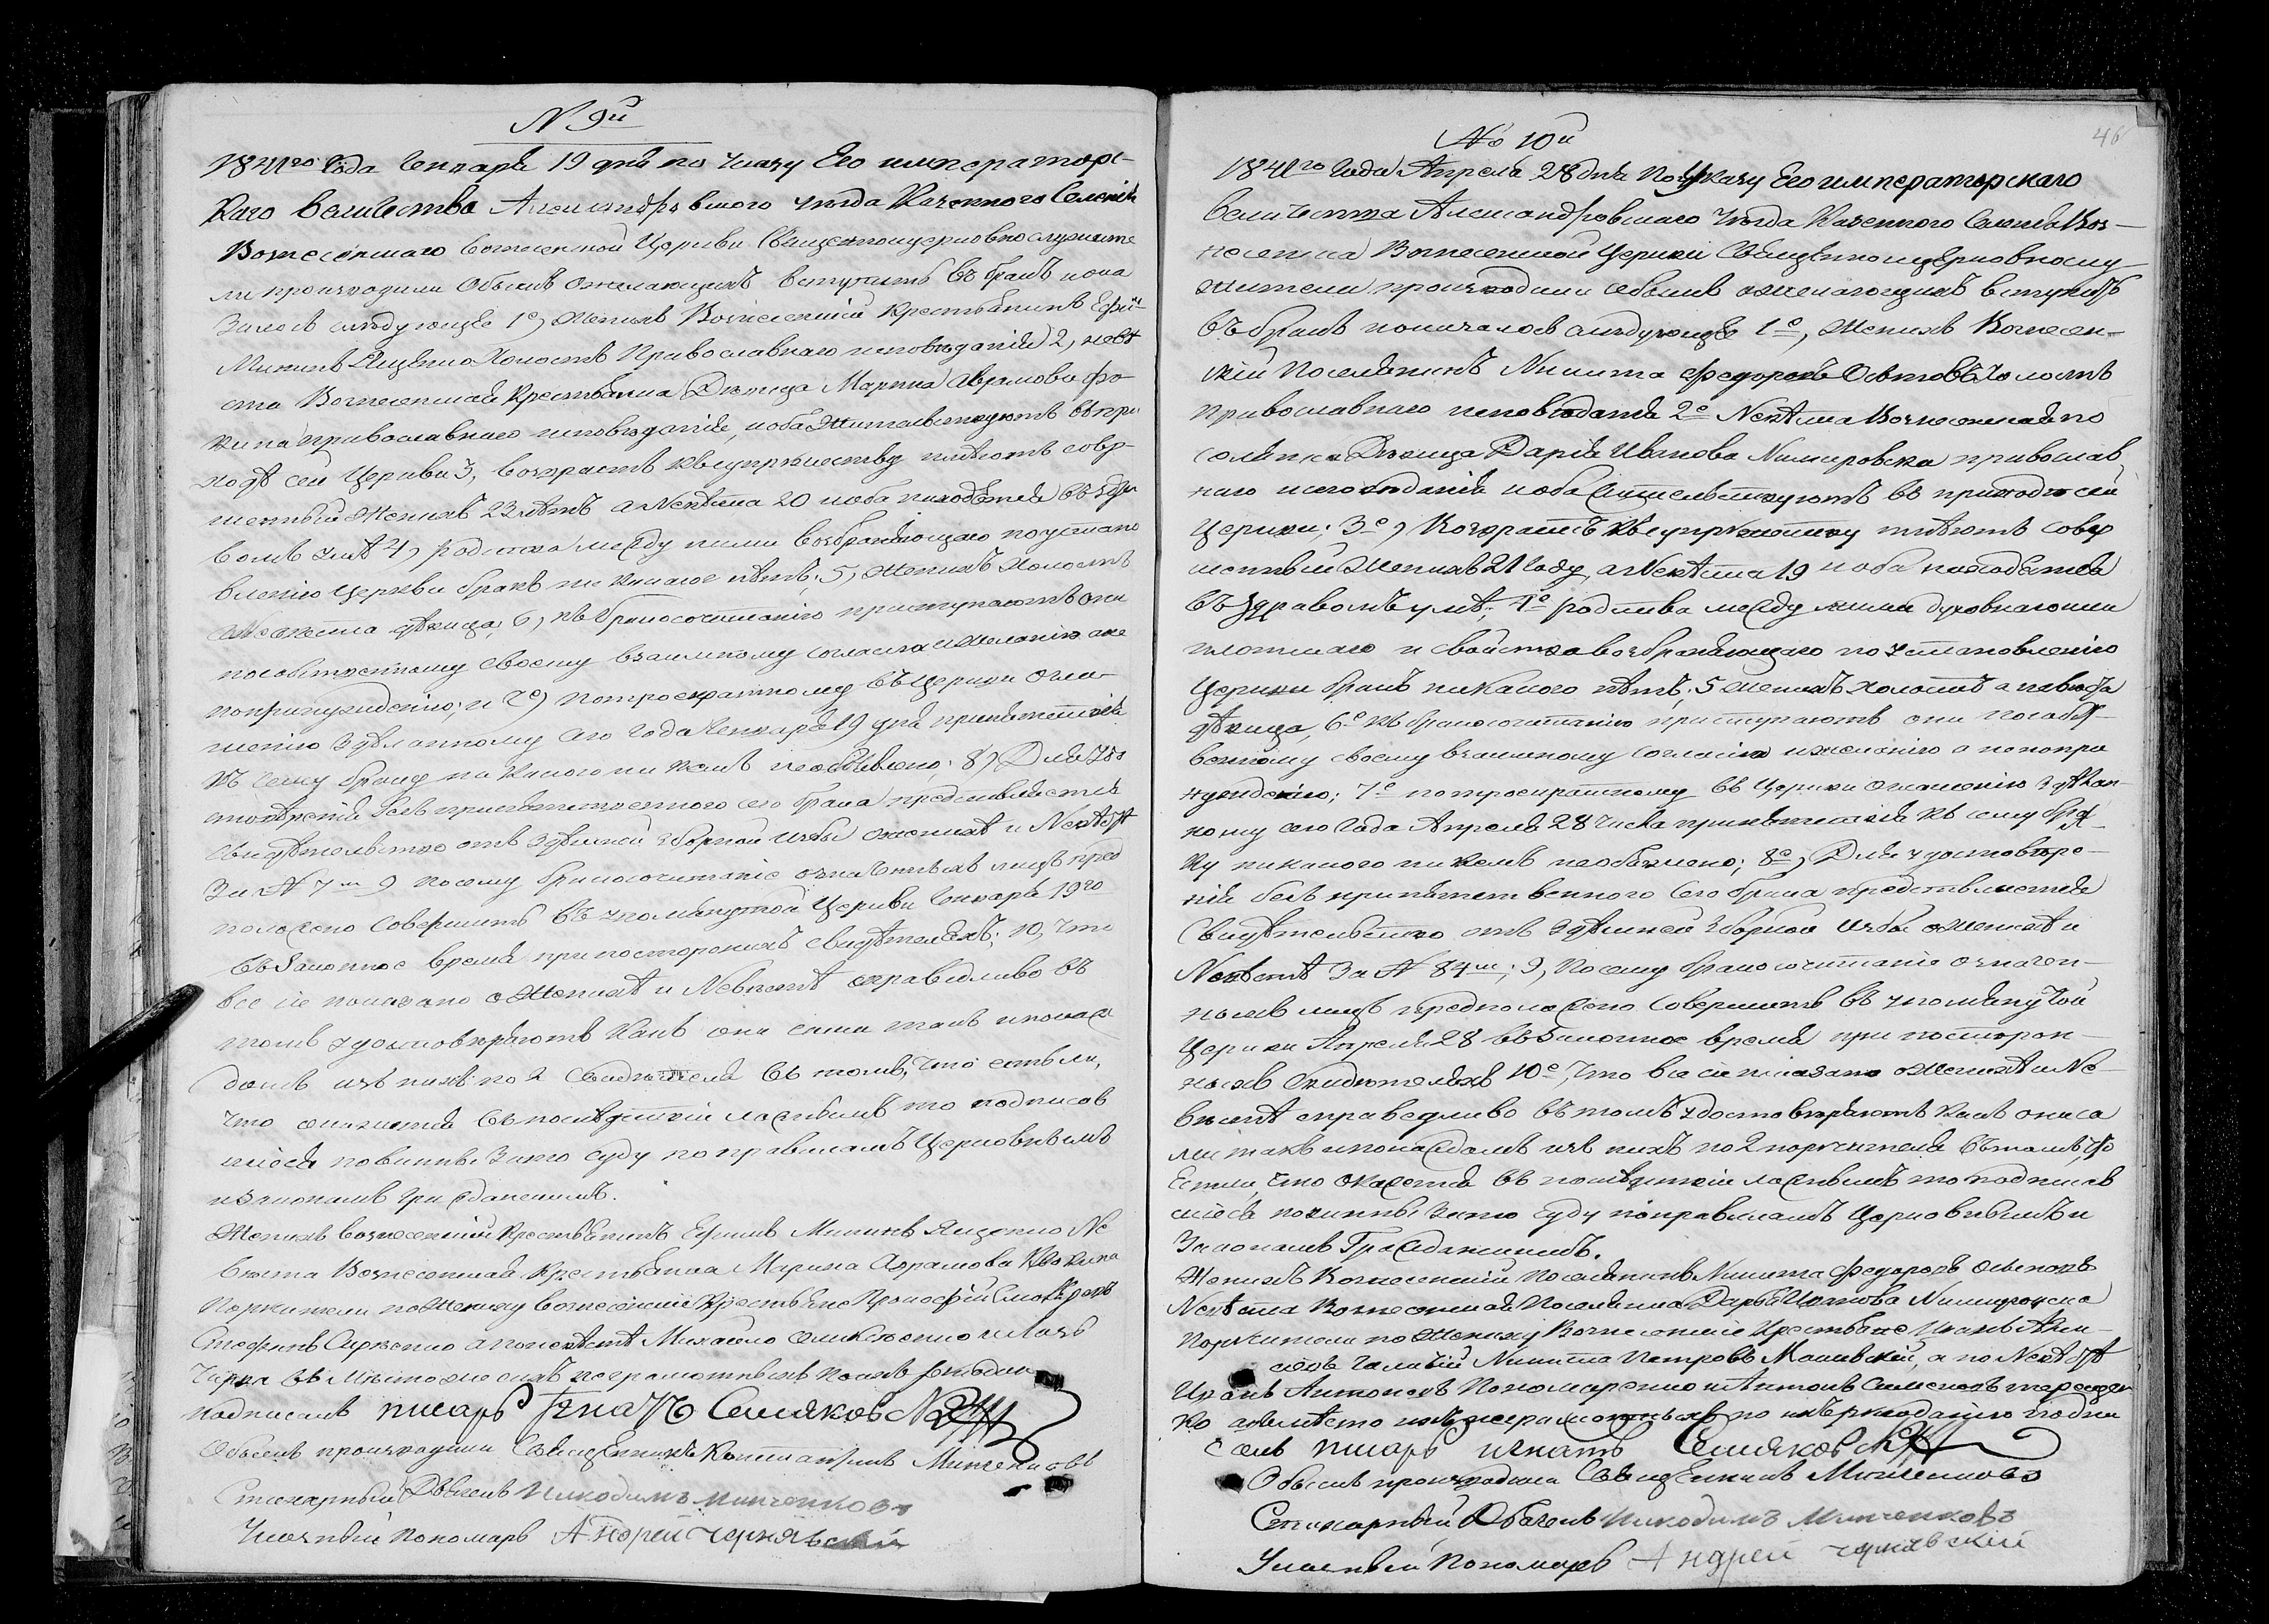 N 9й
1841го Года Генваря 19 дня по Указу Его императорс-
каго величества Александровского уезда Казенного Селенія
Вознесенскаго Вознесенской Церкви Священноцерковнослужите
ли производили обыскъ о желающихъ вступить въ бракъ и ока
залось следующее 1е, Женихъ Вознесенскій крестьянинъ Ефи-
Холостъ Православнаго исповеданія 2, неве
ста Вознесенская Крестьянка Девица Марина Аврамова
православнаго исповеданія, и оба Жительствуютъ въ при
ходе сей Церкви 3, возрастъ къ супружеству имеютъ совер-
шенный Женихъ 23 летъ а Невеста 20 и оба находятся въ здра
вомъ уме 4, родства между ними возбраняющаго по устано
влению Церкви бракъ никакого нетъ; 5, Женихъ Холостъ
а Невеста девица; 6, къ бракосочетанию приступаютъ они
по собственному своему взаимному согласию и желанию а не
по принуждению; и 7е) по троекратному въ церкви огла-
шению зделанному сего Года Генваря 19 дня препятствія
къ сему браку никакого ни кемъ необъявлено; 8) Для удо
стоверенія безпрепятственного сего брака представляется
Свидетельство отъ здешней зборной избы о женихе и Невесте
За N 7м 9 Посему бракосочитаніе означенныхъ лицъ пред
положено совершить въ упомянутой Церкви Генваря 19го
въ законное время при постороннихъ свидетеляхъ; 10, что
все сіе показано о Женихе и Невесте справедливо въ
томъ удостоверяютъ какъ они сами такъ и по
изъ нихъ по 2 Свидетеля въ томъ, что естьли,
что окажется въ последствіи ложнымъ то подписав
шіеся повинны за то суду по правиламъ Церковнымъ
и законамъ Гражданскимъ.
Женихъ вознесенскій Крестьянинъ Ефимъ Ищенко Не
веста Вознесенская Крестьянка Марина Аврамова
Поручители по Жениху вознесенскіе крестьяне
а по невесте Михайло
неграмотныхъ
подписалъ писарь Игнатъ Семяковскій
Обыскъ производили Священникъ Константинъ Минченковъ
Стихарный Дьячекъ Никодимъ Минченковъ
Указный Пономарь Андрей Чернявскій
46
No 10й
1841го Года Апреля 28 дня По Указу Его императорскаго
величества Александровскаго уезда Казенного Селенія Воз-
несенска Вознесенской Церкви Священноцерковнослу
жители производили обыскъ о желающихъ вступить
въ бракъ и оказалось следующее 1е, Женихъ Вознесен-
скій Поселянинъ Никита Федоровъ Холостъ
Православнаго исповеданія 2е Невеста Вознесенская по
селянка Девица Дарія Иванова православ
наго исповеданія и оба жительствуютъ въ приходе сей
Церкви; 3е, Возрастъ къ супружеству имеютъ совер
шенный Женихъ 21 году, а Невеста 19 и оба находятся
въ здравомъ уме; 4е родства между ними духовнаго или
плотскаго и свойства возбраняющаго по установлению
Церкви бракъ никакого нетъ; 5 Женихъ холостъ а невеста
девица, 6е къ бракосочетанию приступаютъ они по собст-
венному своему взаимному согласию и желанию а не по при
нуждению; 7е по троекратному въ Церкви оглашению зделан-
ному сего Года Апреля 28 числа препятствія къ сему бра
ку никакого ни кемъ необъявлено; 8е, Для удостовере-
нія безпрепятственного сего брака представляется
Свидетельство отъ здешней зборной избы о Женихе и
Невесте За N 84м; 9, По сему бракосочитаніе означен-
ныхъ лицъ предположено совершить въ упомянутой
Церкви Апреля 28 въ законное время при посторон-
ныхъ свидетеляхъ 10е, что все сіе показано о Женихе и Не-
весте справедливо въ томъ удостоверяютъ какъ они са
ми такъ и по изъ нихъ по 2 поручителя въ томъ, что
Естьли, что окажется въ последствіи ложнымъ то подписав
шіеся повинны за то Суду по правиламъ Церковнымъ и
Законамъ Гражданскимъ.
Женихъ Вознесенскій Поселянинъ Никита Федоровъ
Невеста Вознесенская Поселянка Дарья Иванова
Поручители по Жениху Вознесенскіе Крестьяне Иванъ
Никита Петровъ а по Невесте
Иванъ Антоновъ Пономаренко и Антонъ Семеновъ
а вместо ихъ неграмотныхъ по ихъ
салъ писарь игнатъ Семяковскій
Обыскъ производили Священникъ Минченковъ
Стихарный Дьячекъ Никодимъ Минченковъ
Указный Пономарь Андрей Чернявскій